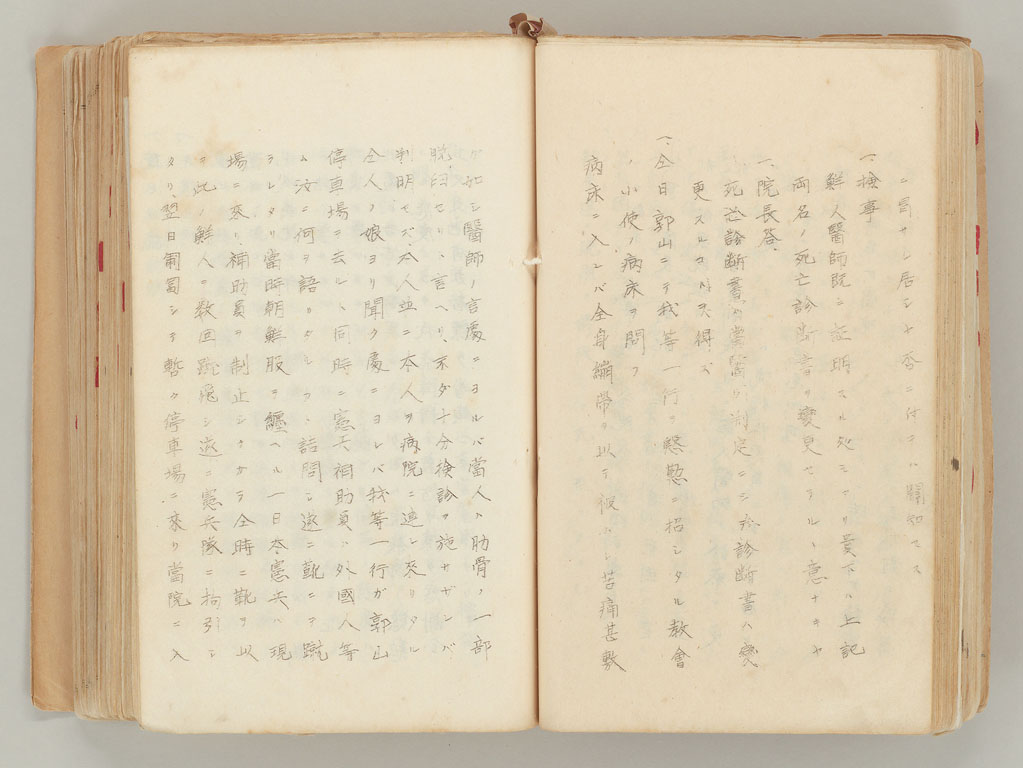 ニ冒サレ居シヤ否ニ付テハ關知セス
一、檢事
鮮人醫師既ニ証明スル処ニアリ貴下ハ上記
両名ノ死亡診断書ヲ変更セラルヽ意ナキヤ
一、院長答
死亡診断書ハ當醫ノ判定ニシテ診断書ハ変
更スルコトヲ得ズ
一、仝日郭山ニテ我等一行ヲ慇懃ニ招シタル教會
小使ノ病床ヲ問フ
病床ニ入レバ全身繃帶ヲ以テ被ハレ苦痛甚敷
ゲ如シ醫師ノ言處ニヨルバ當人ハ肋骨ノ一部
脱臼セリト言ヘリ、未ダ十分検診ヲ施サザレバ
判明セズ、本人並ニ本人ヲ病院ニ連レ來リタル
仝人ノ娘ヨリ聞ク處ニヨレバ我等一行ガ郭山
停車場ヲ去ルト同時ニ憲兵補助員ハ外國人等
ハ汝ニ何ヲ語リタルカヲ詰問シ遂ニ靴ニテ蹴
ラレタリ當時朝鮮服ヲ纏ヘル一日本憲兵ハ現
場ニ來リ補助員ヲ制止シナガラ仝時ニ靴ヲ以
テ此ノ鮮人ヲ数回蹴飛シ遂ニ憲兵隊ニ拘引シ
タリ翌日匍匐シテ暫ク停車場ニ來リ當院ニ入